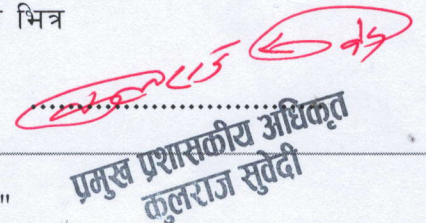 भित्र
....................................
प्रमुख प्रशासकीय अधिकृत
कुलराज सुवेदी
"